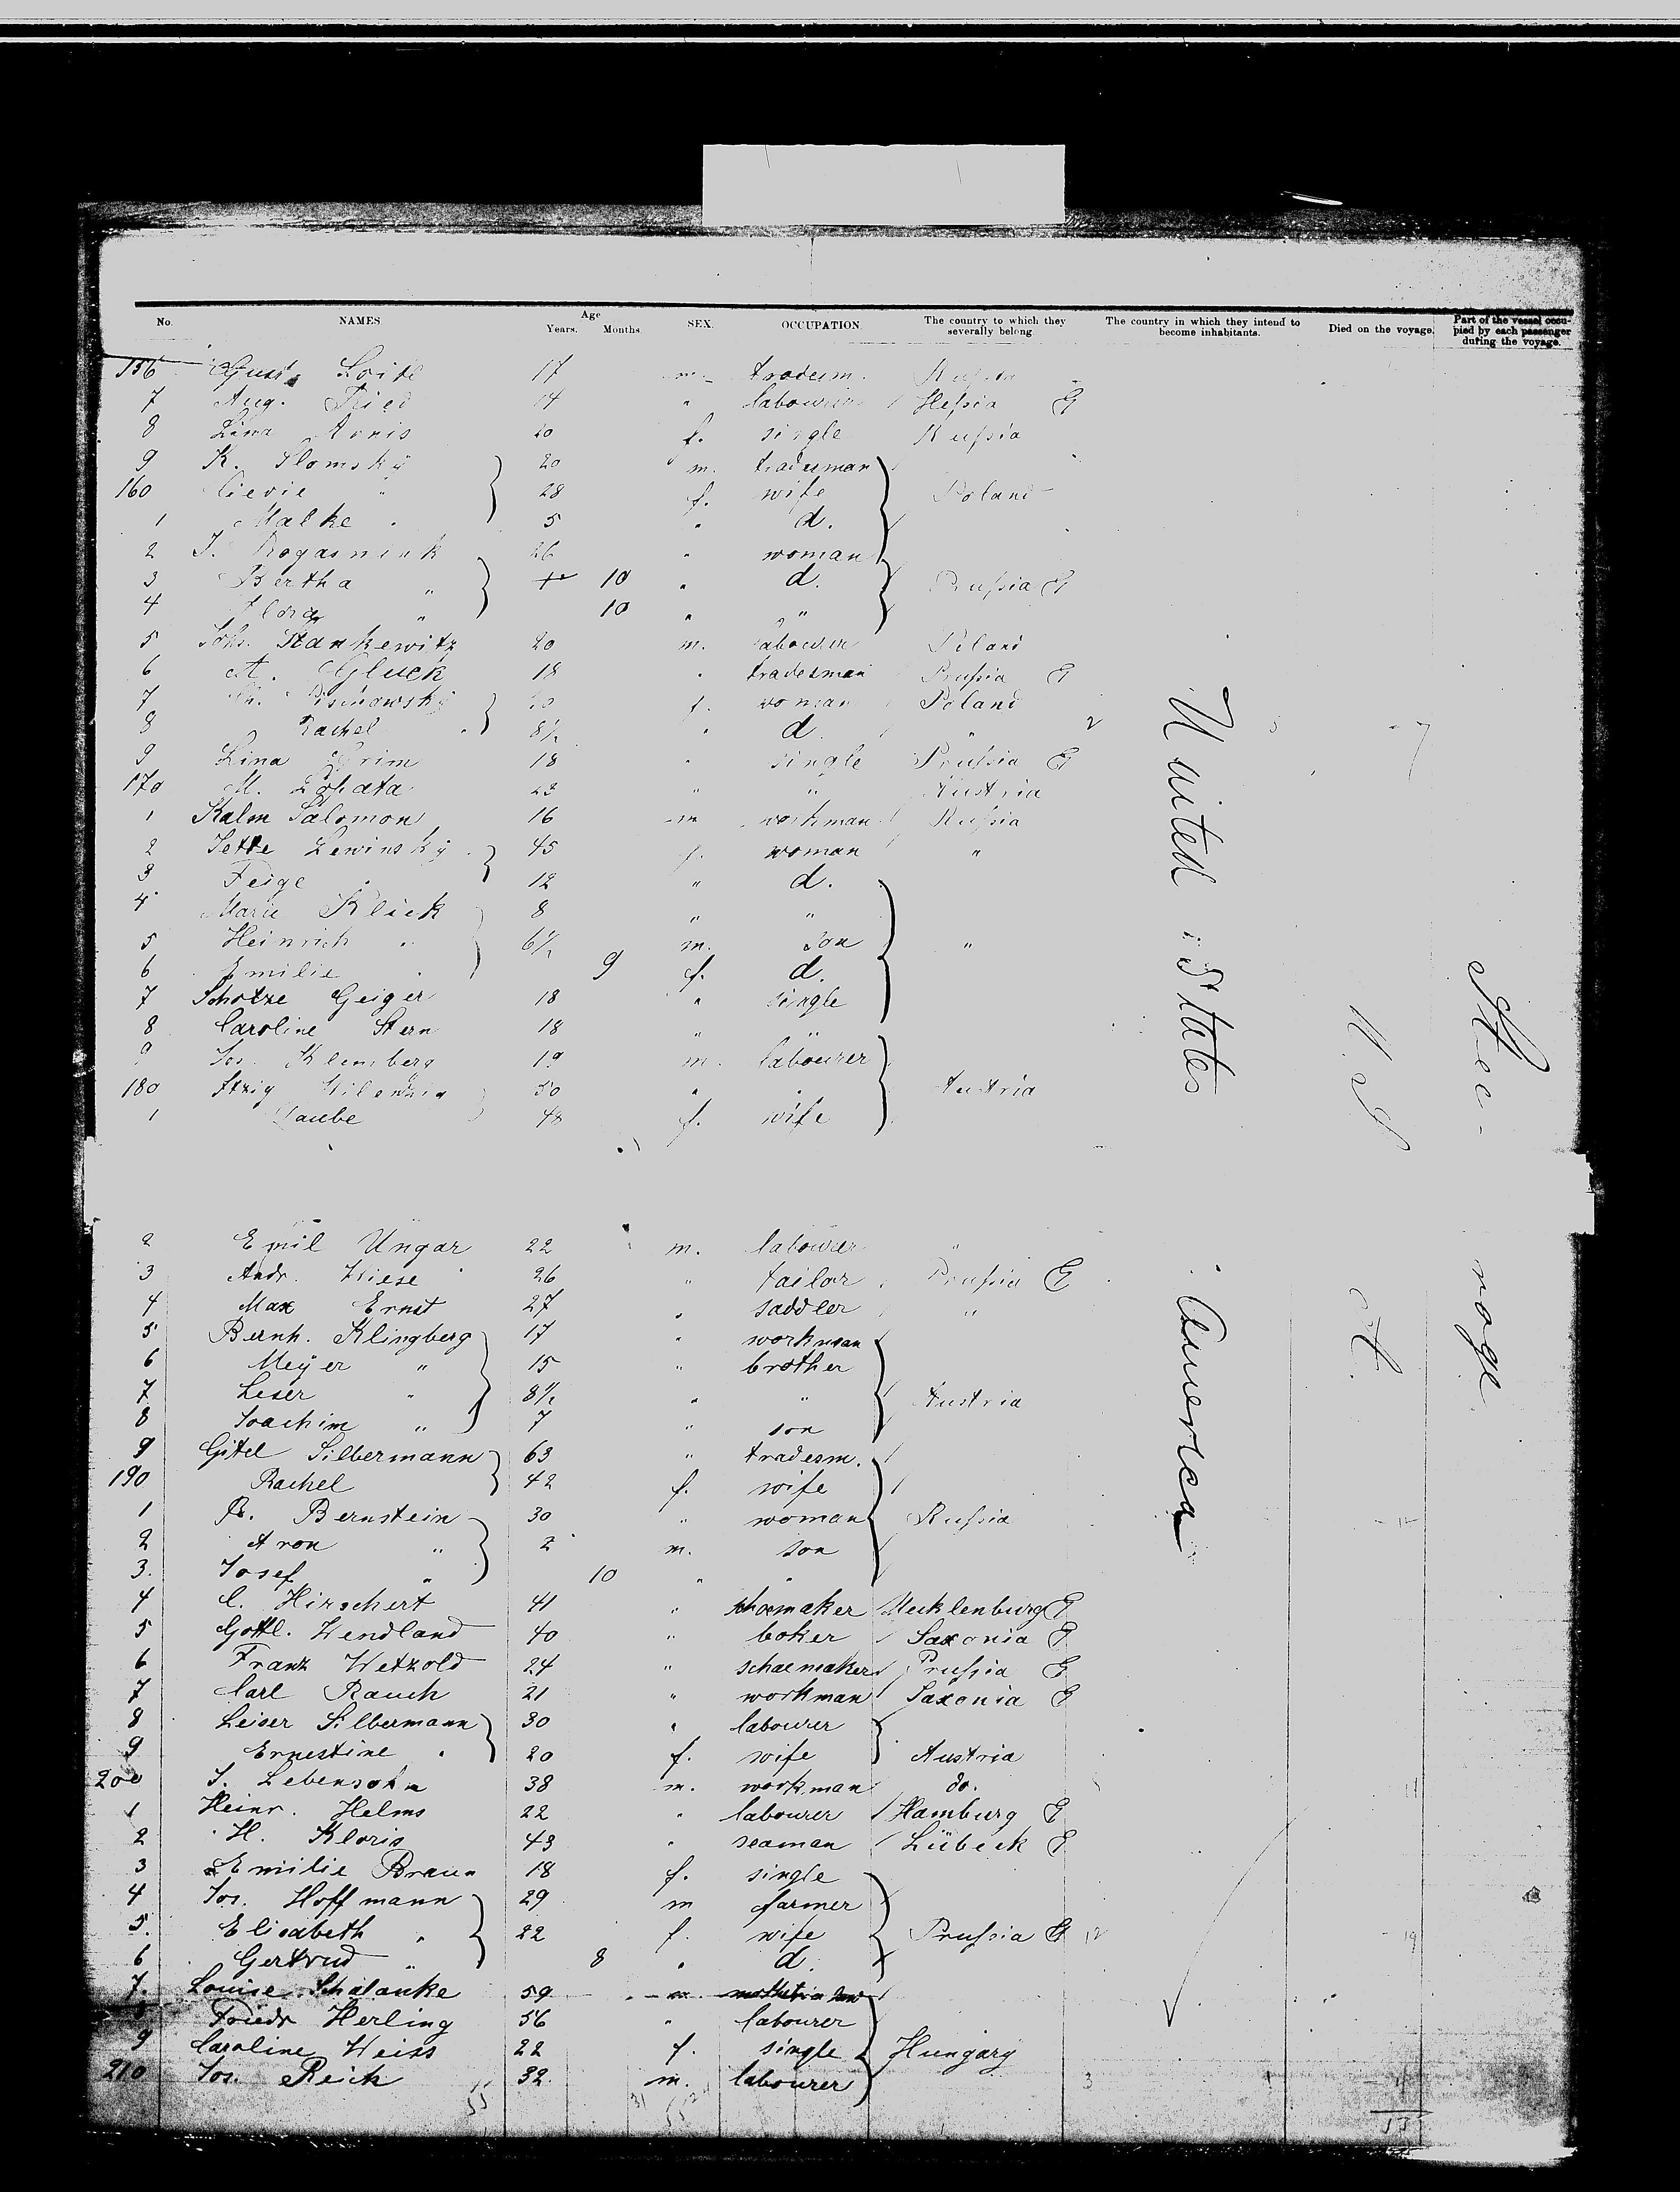 No. NAMES Age Years. Months. SEX. OCCUPATION. The country to which they severally belong The country in which they intend to become inhabitants. Died on the voyage. Part of the vessel occupied by each passenger during the voyage.
156 17 m. tradesm. Russia
7 Aug. Fried 14 " labourer Hessia G
8 Lina 20 f. single Russia
9 K. Slomsky 20 m. tradesman
160 " 28 f. wife Poland
1 Malke " 5 " d.
2 J. 26 " woman
3 Bertha " 10 " d. Prussia G
4 Flora " 10 " "
5 Joh. Stankewitz 20 m. labourer Poland
6 A. Gluck 18 " tradesman Prussia G
7 20 f. woman Poland
8 Rachel " 8½ " d. "
9 Lina Grim 18 " single Prussia G
170 M. 23 " " Austria
1 Kalm Salomon 16 m workman Russia
2 Jette Lewinsky 45 f. woman "
3 Feige " 12 " d.
4 Marie Klick 8 " "
5 Heinrich " 6½ m. son "
6 Emilie " 9 f. d.
7 Schotze Geiger 18 " single
8 Caroline Stern 18 " "
9 Jos. Klemberg 19 m. labourer
180 Itzig 50 " " Austria
1 Taube 48 f. wife
2 Emil Ungar 22 m. labourer "
3 Andr. Wiese 26 " tailor Prussia G
4 Max Ernst 27 " saddler "
5 Bernh. Klingberg 17 " workman
6 Meyer " 15 " brother
7 Leser " 8½ " " Austria
8 Joachim " 7 " son
9 Gitel Silbermann 63 " tradesm.
190 Rachel 42 f. wife
1 B. Bernstein 30 " woman Russia
2 Aron " 2 m. son
3. Josef " 10 " "
4 C. Hirschert 41 " shoemaker Mecklenburg G
5 Gottl. Wendland 40 " boker Saxonia G
6 Franz Wetzold 24 " schoemaker Prussia G
7 Carl Rauch 21 " workman Saxonia G
8 Leiser Silbermann 30 " labourer
9 Ernestine " 20 f. wife Austria
200 J. Lebensohn 38 m. workman do.
1 Heinr. Helms 22 " labourer Hamburg G
2 H. Kloris 43 " seaman Lübeck G
3 Emilie Braun 18 f. single
4 Jos. Hoffmann 29 m farmer
5. Elisabeth " 22 f. wife Prussia G
6 Gertrud " 8 " d.
7. Louise Schalanke 59
8 Friedr Herling 56 " labourer
9 Caroline Weiss 22 f. single Hungary
210 Jos. Reich 32. m. labourer
United States
America
Stee-
rage